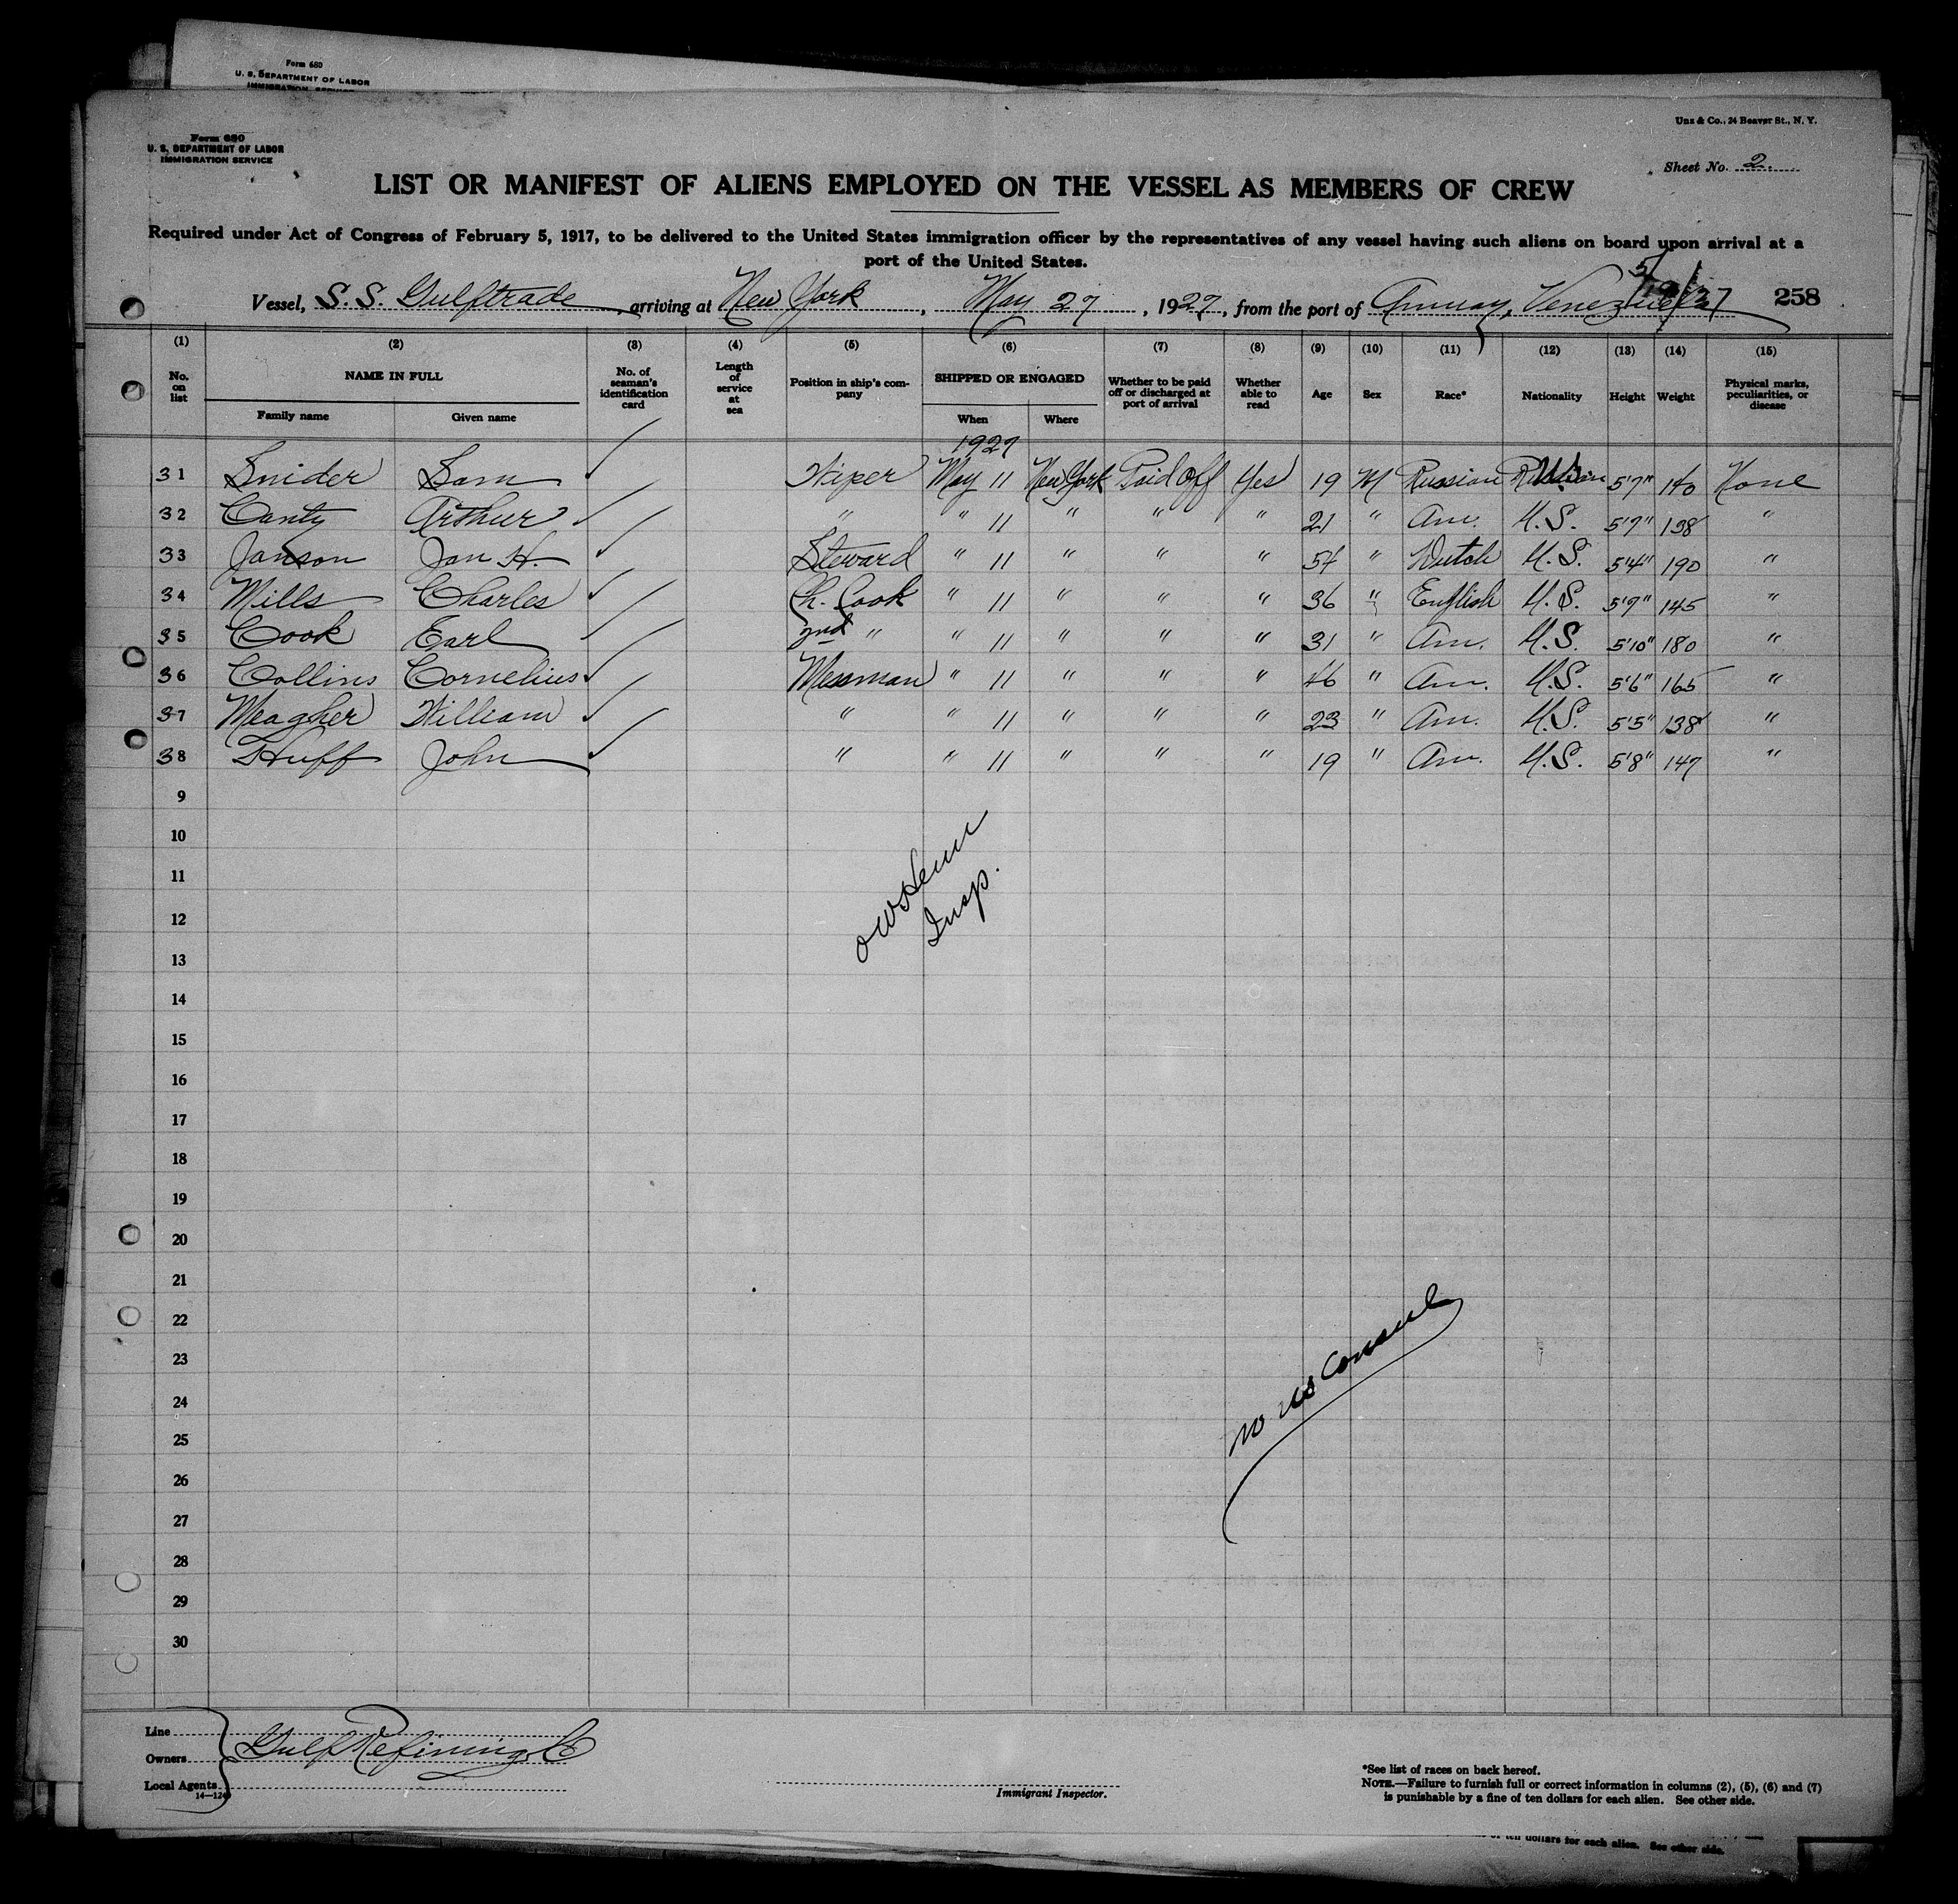 Form 680
U. S. DEPARTMENT OF LABOR
IMMIGRATION SERVICE
Form 680
U. S. DEPARTMENT OF LABOR
IMMIGRATION SERVICE
Unz & Co., 24 Beaver St., N. Y.
Sheet No. 2
LIST OR MANIFEST OF ALIENS EMPLOYED ON THE VESSEL AS MEMBERS OF CREW
Required under Act of Congress of February 5, 1917, to be delivered to the United States immigration officer by the representatives of any vessel having such aliens on board upon arrival at a
port of the United States.
Vessel, S. S. Gulftrade, arriving at New York, May 27, 1927, from the port of Amuay, Venezuela 258
(1) (2) (3) (4) (5) (6) (7) (8) (9) (10) (11) (12) (13) (14) (15)
No. on list NAME IN FULL Family name Given name No. of seaman's identification card Length of service at sea Position in ship's company SHIPPED OR ENGAGED When Where Whether to be paid off or discharged at port of arrival Whether able to read Age Sex Race* Nationality Height Weight Physical marks, peculiarities, or disease
1927
31 Snider Sam Wiper May 11 New York Paid Off Yes 19 M Russian 5'7" 140 None
32 Canty Arthur " " 11 " " " 21 " Am. U.S. 5'7" 138 "
33 Janson Jan H. Steward " 11 " " " 54 " Dutch U.S. 5'4" 190 "
34 Mills Charles Ch. Cook " 11 " " " 36 " English U.S. 5'7" 145 "
35 Cook Earl 2nd " " 11 " " " 31 " Am. U.S. 5'10" 180 "
36 Collins Cornelius Messman " 11 " " " 46 " Am. U.S. 5'6" 165 "
37 Meagher William " " 11 " " " 23 " Am. U.S. 5'5" 138 "
38 Huff John " " 11 " " " 19 " Am. U.S. 5'8" 147 "
9
10
11
Insp.
12
13
14
15
16
17
18
19
20
21
22
23
no US Consul
24
25
26
27
28
29
30
Line
Owners Gulf Refining Co
Local Agents
14—124
Immigrant Inspector.
*See list of races on back hereof.
NOTE.—Failure to furnish full or correct information in columns (2), (5), (6) and (7)
is punishable by a fine of ten dollars for each alien. See other side.
of ten dollars for each alien. See other side.